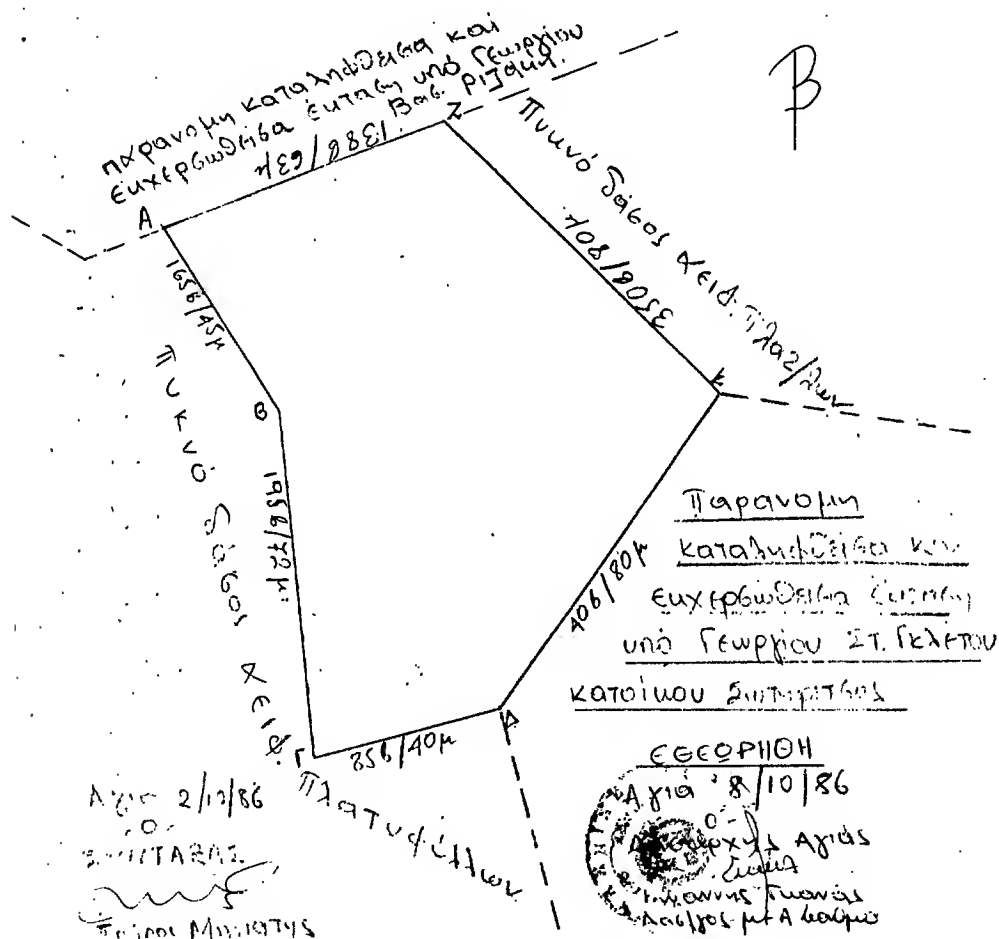 Β
παρανομη καταληφθεισα και
εκχερσωθεισα έκταση υπό Γεωργίου
Βασ. Ριζάκη.
Α
138β/63μ
Ζ
Πυκνό δάσος αειφ. πλατ/λων
350β/80μ
Ε
165β/45μ
Β
195β/72μ
Πυκνό δάσος αειφ.
Πλατυφύλλων
Γ
85β/40μ
Δ
40β/80μ
Παρανομη
καταληφθείσα και
εκχερσωθεισα έκταση
υπό Γεωργίου Στ. Γκλέτου
κατοίκου
ΕΘΕΩΡΗΘΗ
Αγιά 8/10/86
Ο
Δασάρχης Αγιάς
Ιωάννης
Δασ/γος με Α βαθμό
Αγια 2/10/86
Ο
ΣΥΝΤΑΞΑΣ